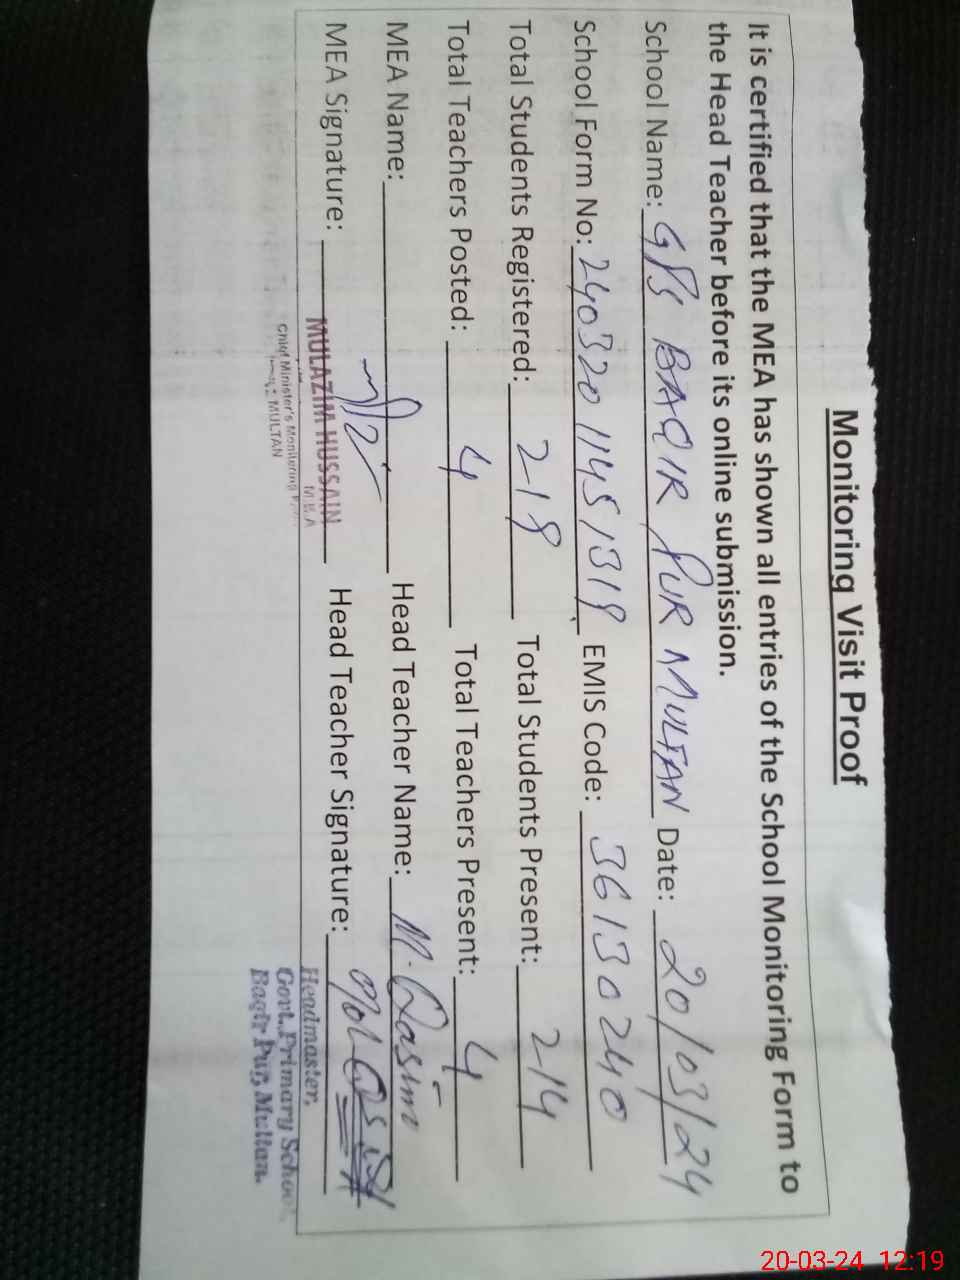 Monitoring Visit Proof
It is certified that the MEA has shown all entries of the School Monitoring Form to
the Head Teacher before its online submission.
School Name: GPS BAQIR PUR MULTAN Date: 20/03/24
School Form No: 240320 1145 1319 EMIS Code: 36130240
Total Students Registered: 218 Total Students Present: 214
Total Teachers Posted: 4 Total Teachers Present: 4
MEA Name: Head Teacher Name: M. Qasim
MEA Signature: Head Teacher Signature:
MULAZIM HUSSAIN
M.E.A
Chief Minister's Monitoring
MULTAN
Headmaster,
Govt. Primary School
Baqir Pur, Multan.
20-03-24 12:19